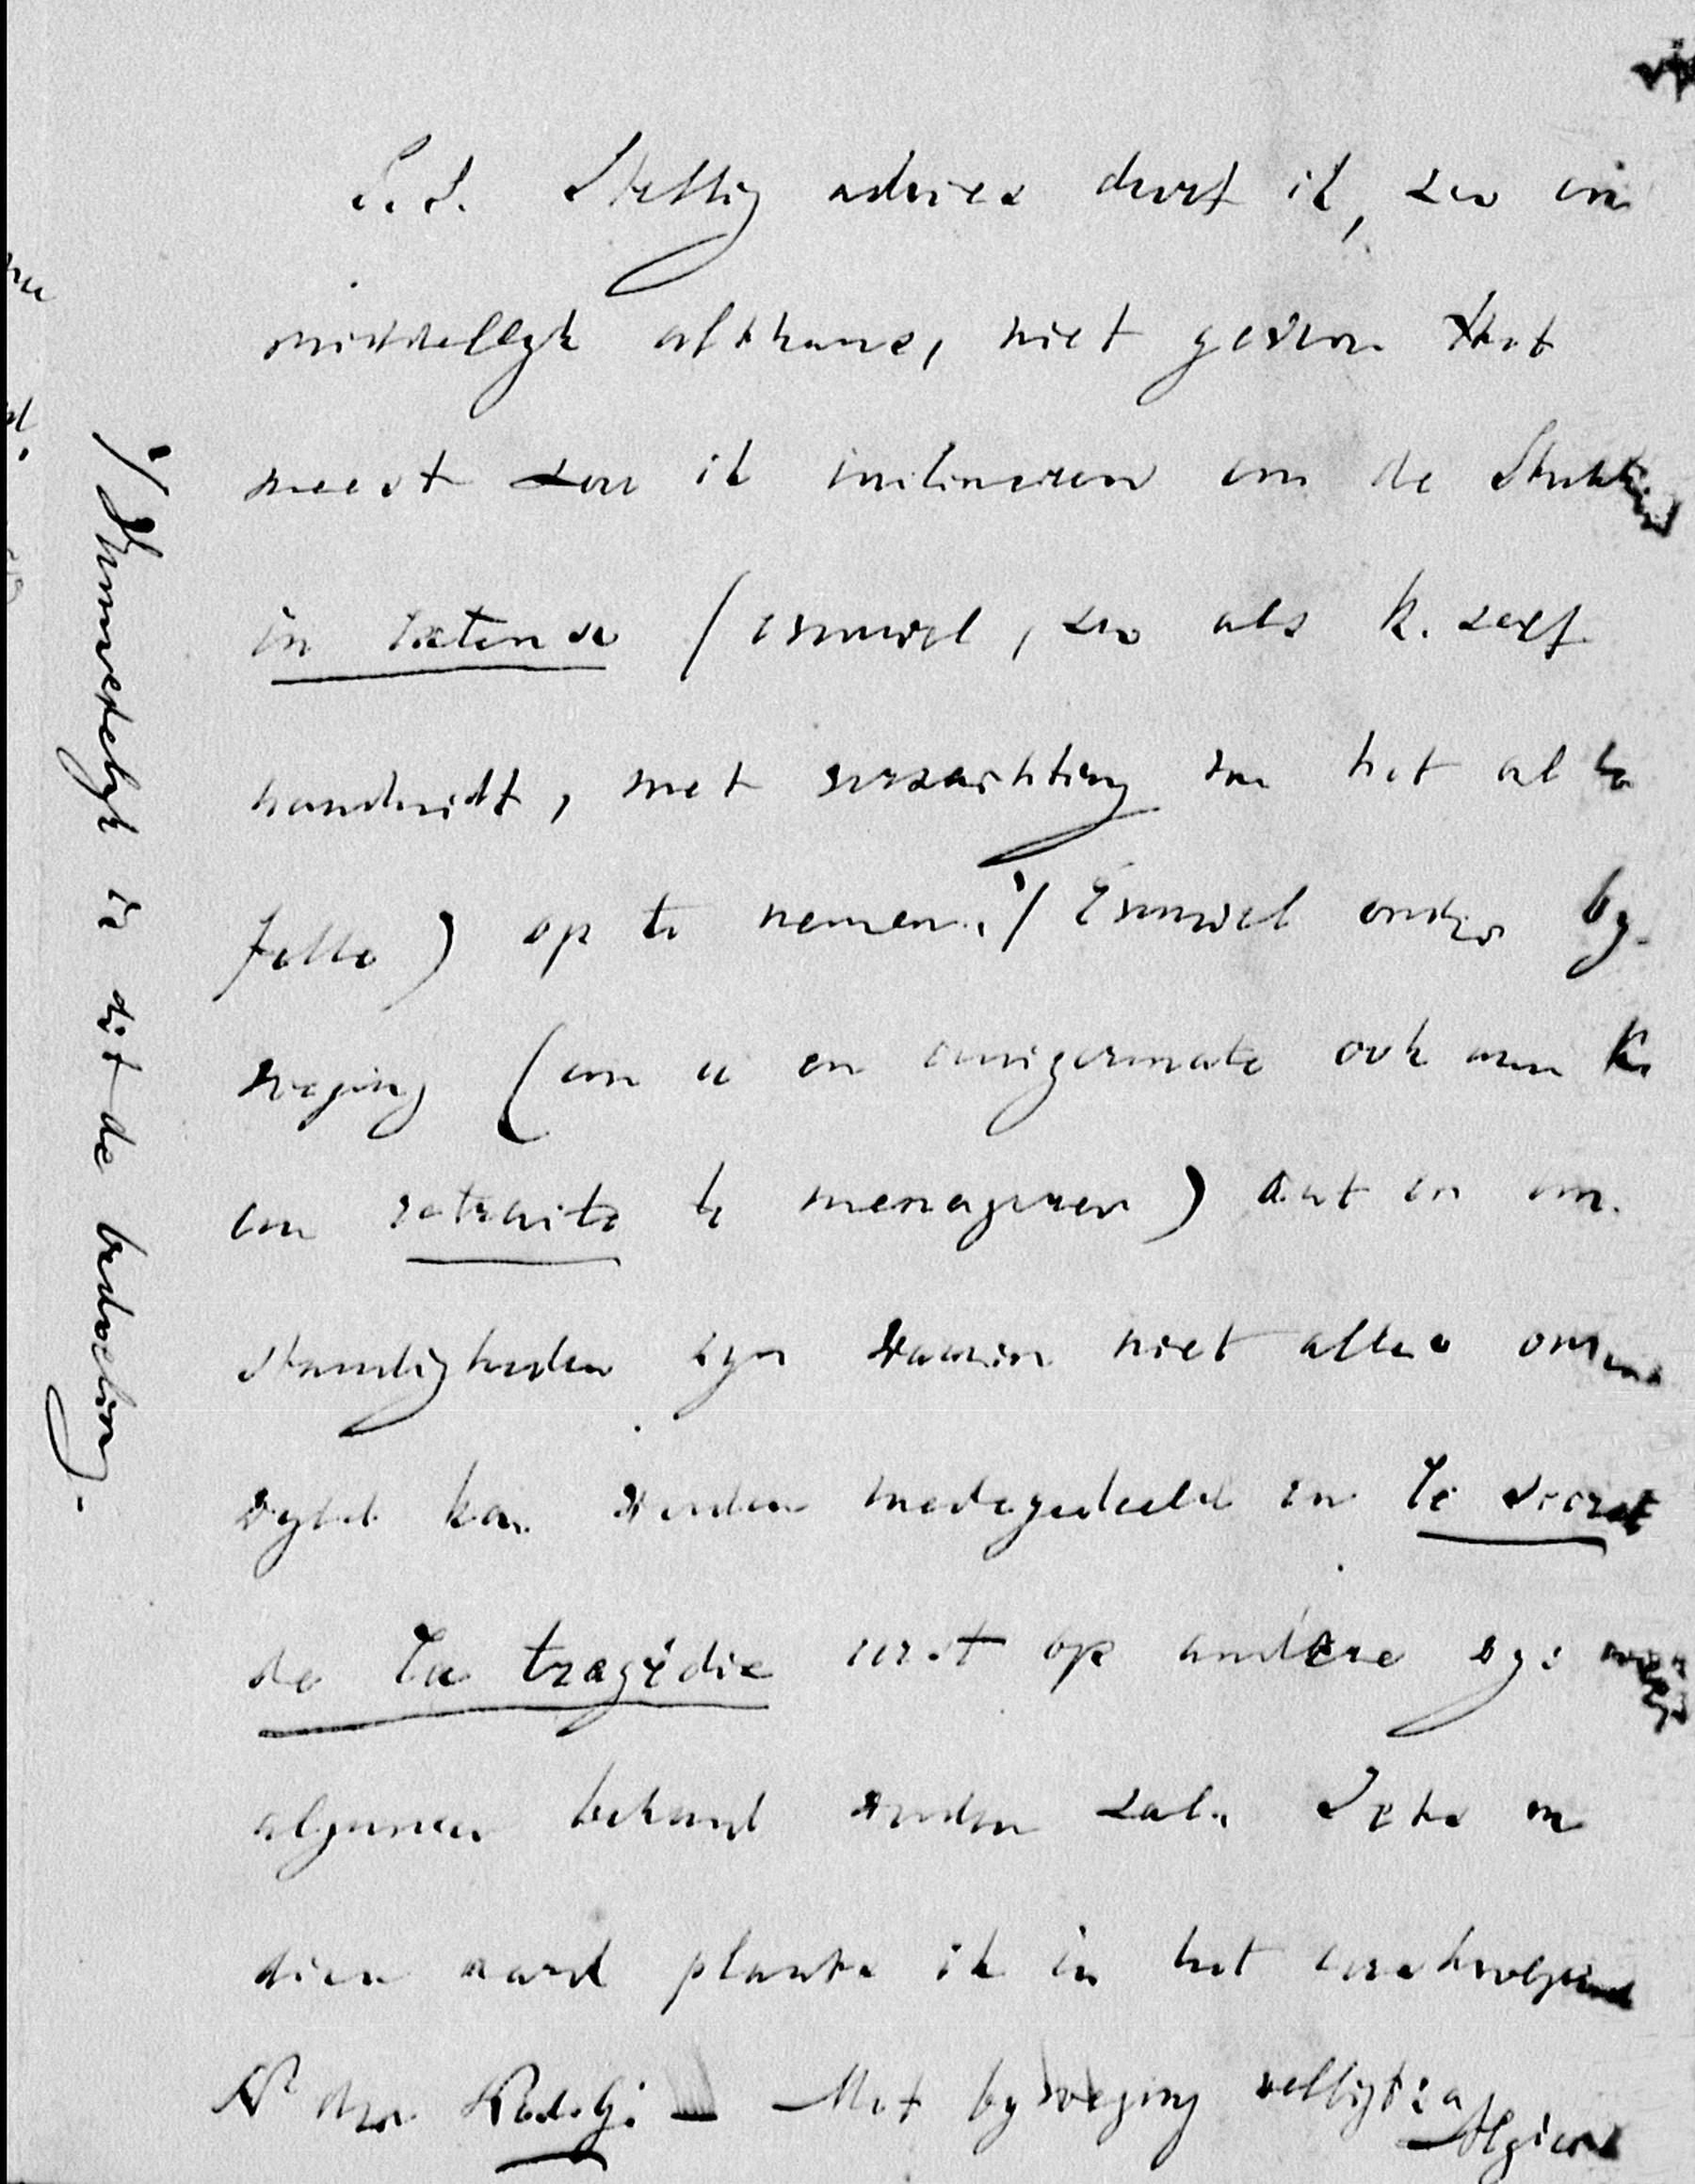 S.S. Stellig advies durf ik, zoo on
middellyk althans, niet geven. Het
meest zou ik inclineren om de stukken
in extenso (evenwel, zoo als K. zelf
aanduidt, met verzachting van het al te
felle) op te nemen. Evenwel onder by
voeging (om u en eenigermate ook aan K.
een retraite te menageren) dat er om
standigheden zyn waarin niet alles onver
wyld kan worden medegedeeld en le secret
de la tragédie eerst op andere wyze
algemeen bekend worden zal. Iets van
dien aard plaatse ik in het eerstvolgend
Nº der Med. Gi. Met byvoeging welligt
Algiers
Vermoedelyk is dit de bedoeling.